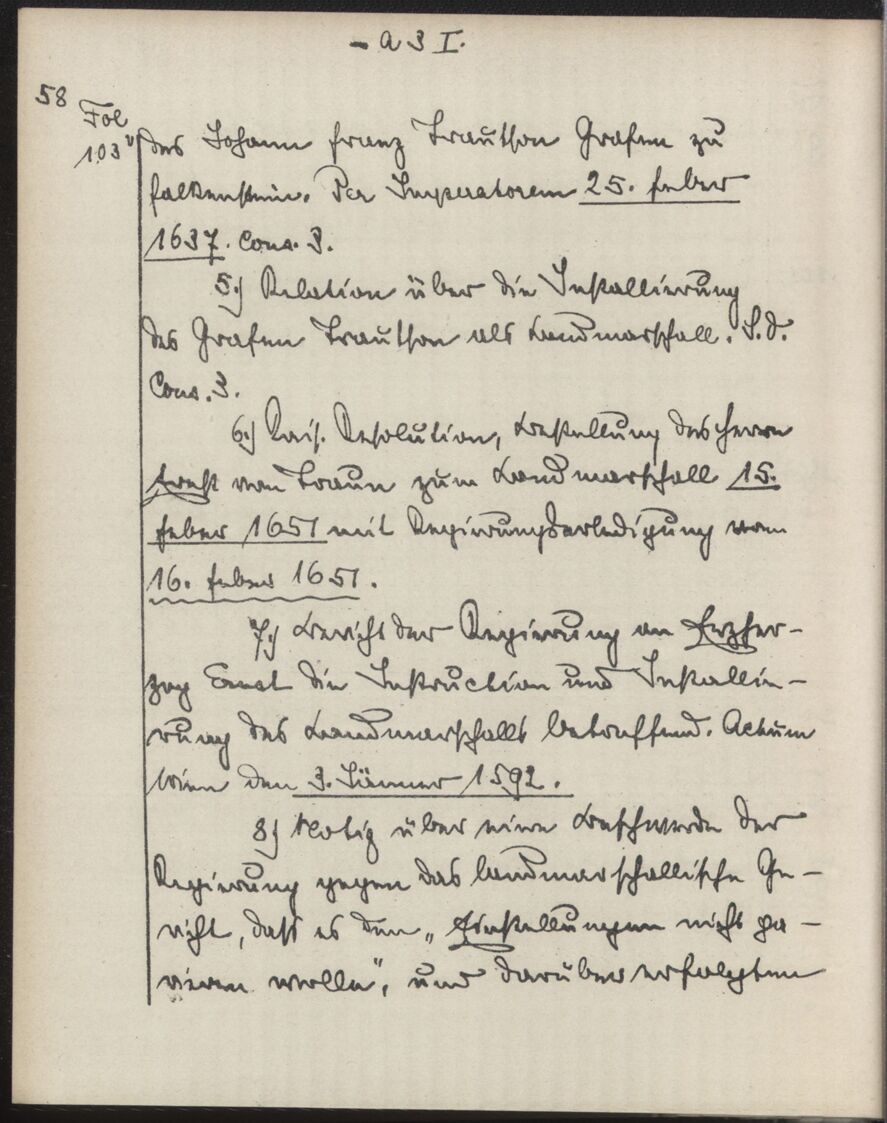 - A 3 I.
58
Fol
103v
des Johann Franz Trautson Grafen zu
Falkenstein. Per Imperatorem 25. Feber
1637. Cons. 3.
5.) Relation über die Installierung
des Grafen Trautson als Landmarschall. S.d.
Cons. 3.
6.) Kais. Resolution, Bestellung des Herrn
Ernst von Traun zum Landmarschall 15.
Feber 1651 mit Regierungserledigung vom
16. Feber 1651.
7.) Bericht der Regierung an Erzher-
zog Ernst die Instruction und Installie-
rung des Landmarschalls betreffend. Actum
Wien den 3. Jänner 1592.
8.) Notiz über eine Beschwerde der
Regierung gegen das landmarschallische Ge-
richt, dass es den „Einstellungen nicht pa-
rieren wolle", und darüber erfolgten